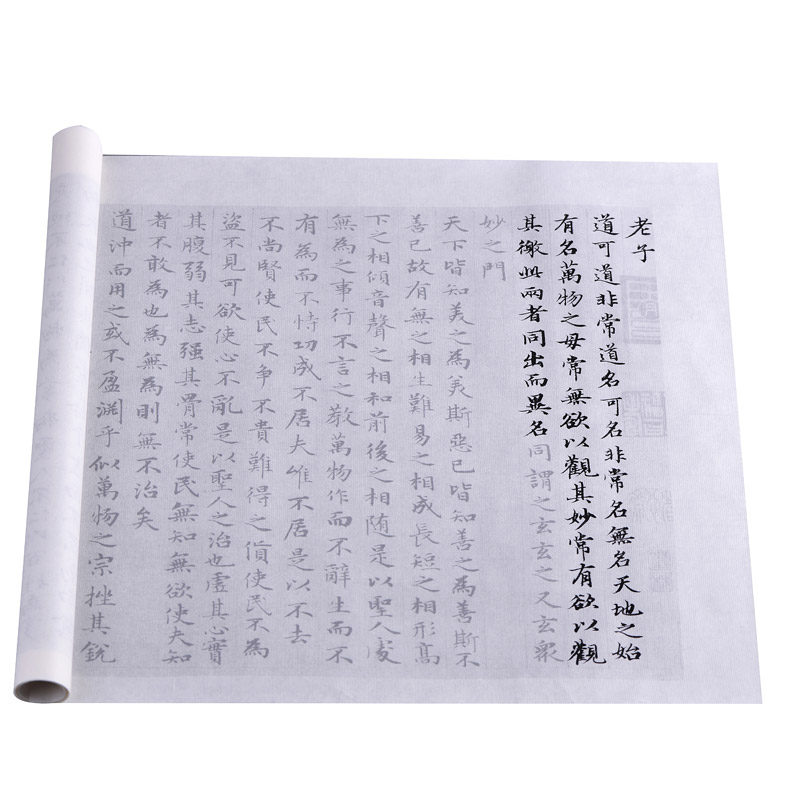 老子
道可道非常道名可名非常名無名天地之始
有名萬物之母常無欲以觀其妙常有欲以觀
其徼此兩者同出而異名同謂之玄玄之又玄眾
妙之門
天下皆知美之為美斯惡已皆知善之為善斯不
善已故有無之相生難易之相成長短之相形高
下之相傾音聲之相和前後之相随是以聖人處
無為之事行不言之教萬物作而不辭生而不
有為而不恃功成不居夫唯不居是以不去
不尚賢使民不争不貴難得之貨使民不為
盜不見可欲使心不亂是以聖人之治也虛其心實
其腹弱其志强其骨常使民無知無欲使夫知
者不敢為也為無為則無不治矣
道沖而用之或不盈淵乎似萬物之宗挫其銳